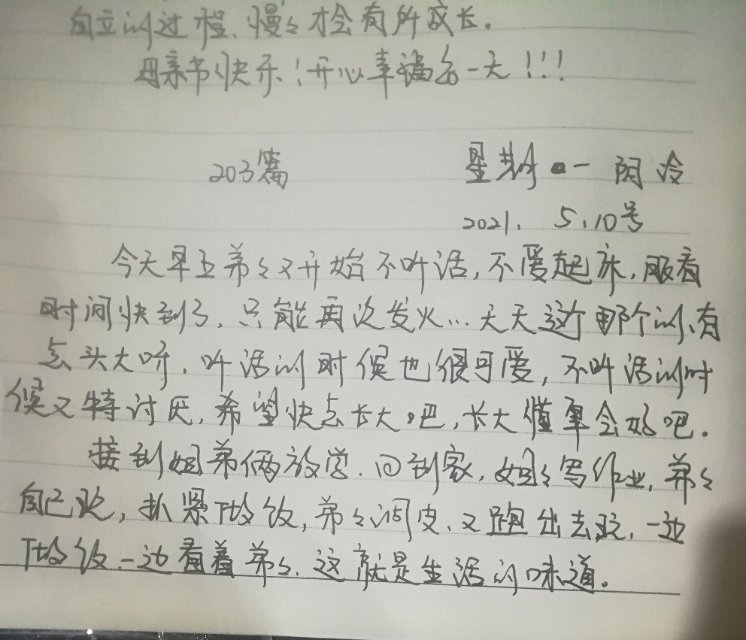 自立的过程,慢々才会有所成长.
母亲节快乐!开心幸福每一天!!!
203篇 星期一 阴冷
2021. 5.10号
今天早上弟々又开始不听话,不愿起床,眼看
时间快到了,只能再次发火...天天这个那个的,有
点头大呀.听话的时候也很可爱,不听话的时
候又特讨厌,希望快点长大吧,长大懂事会好吧.
接到姐弟俩放学.回到家,姐々写作业,弟々
自己玩,抓紧做饭,弟々调皮.又跑出去玩,一边
做饭一边看着弟々.这就是生活的味道。